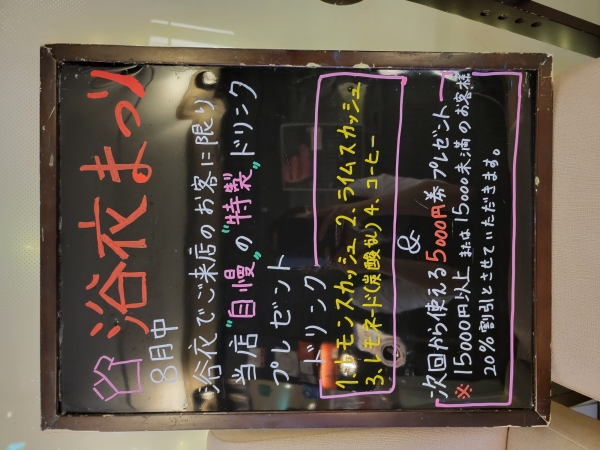 浴衣まつり
8月中
浴衣でご来店のお客に限り
当店"自慢"の"特製"ドリンク
プレゼント
ドリンク
1. レモンスカッシュ 2. ライムスカッシュ
3. レモネード(炭酸なし) 4. コーヒー
&
次回から使える5000円券プレゼント
※15000円以上 または 15000未満のお客様
20%割引とさせていただきます。